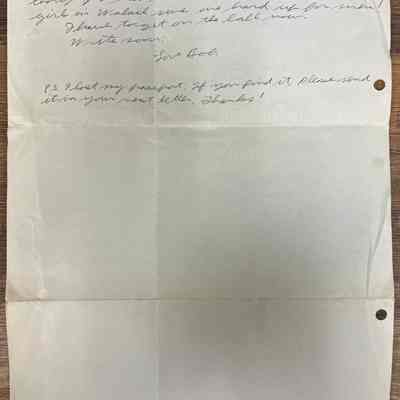 girls in sure are hard up for men!
I have to get on the ball now.
Write soon,
Love Bob
P.S. I lost my passport. If you find it please send
it in your next letter. Thanks!